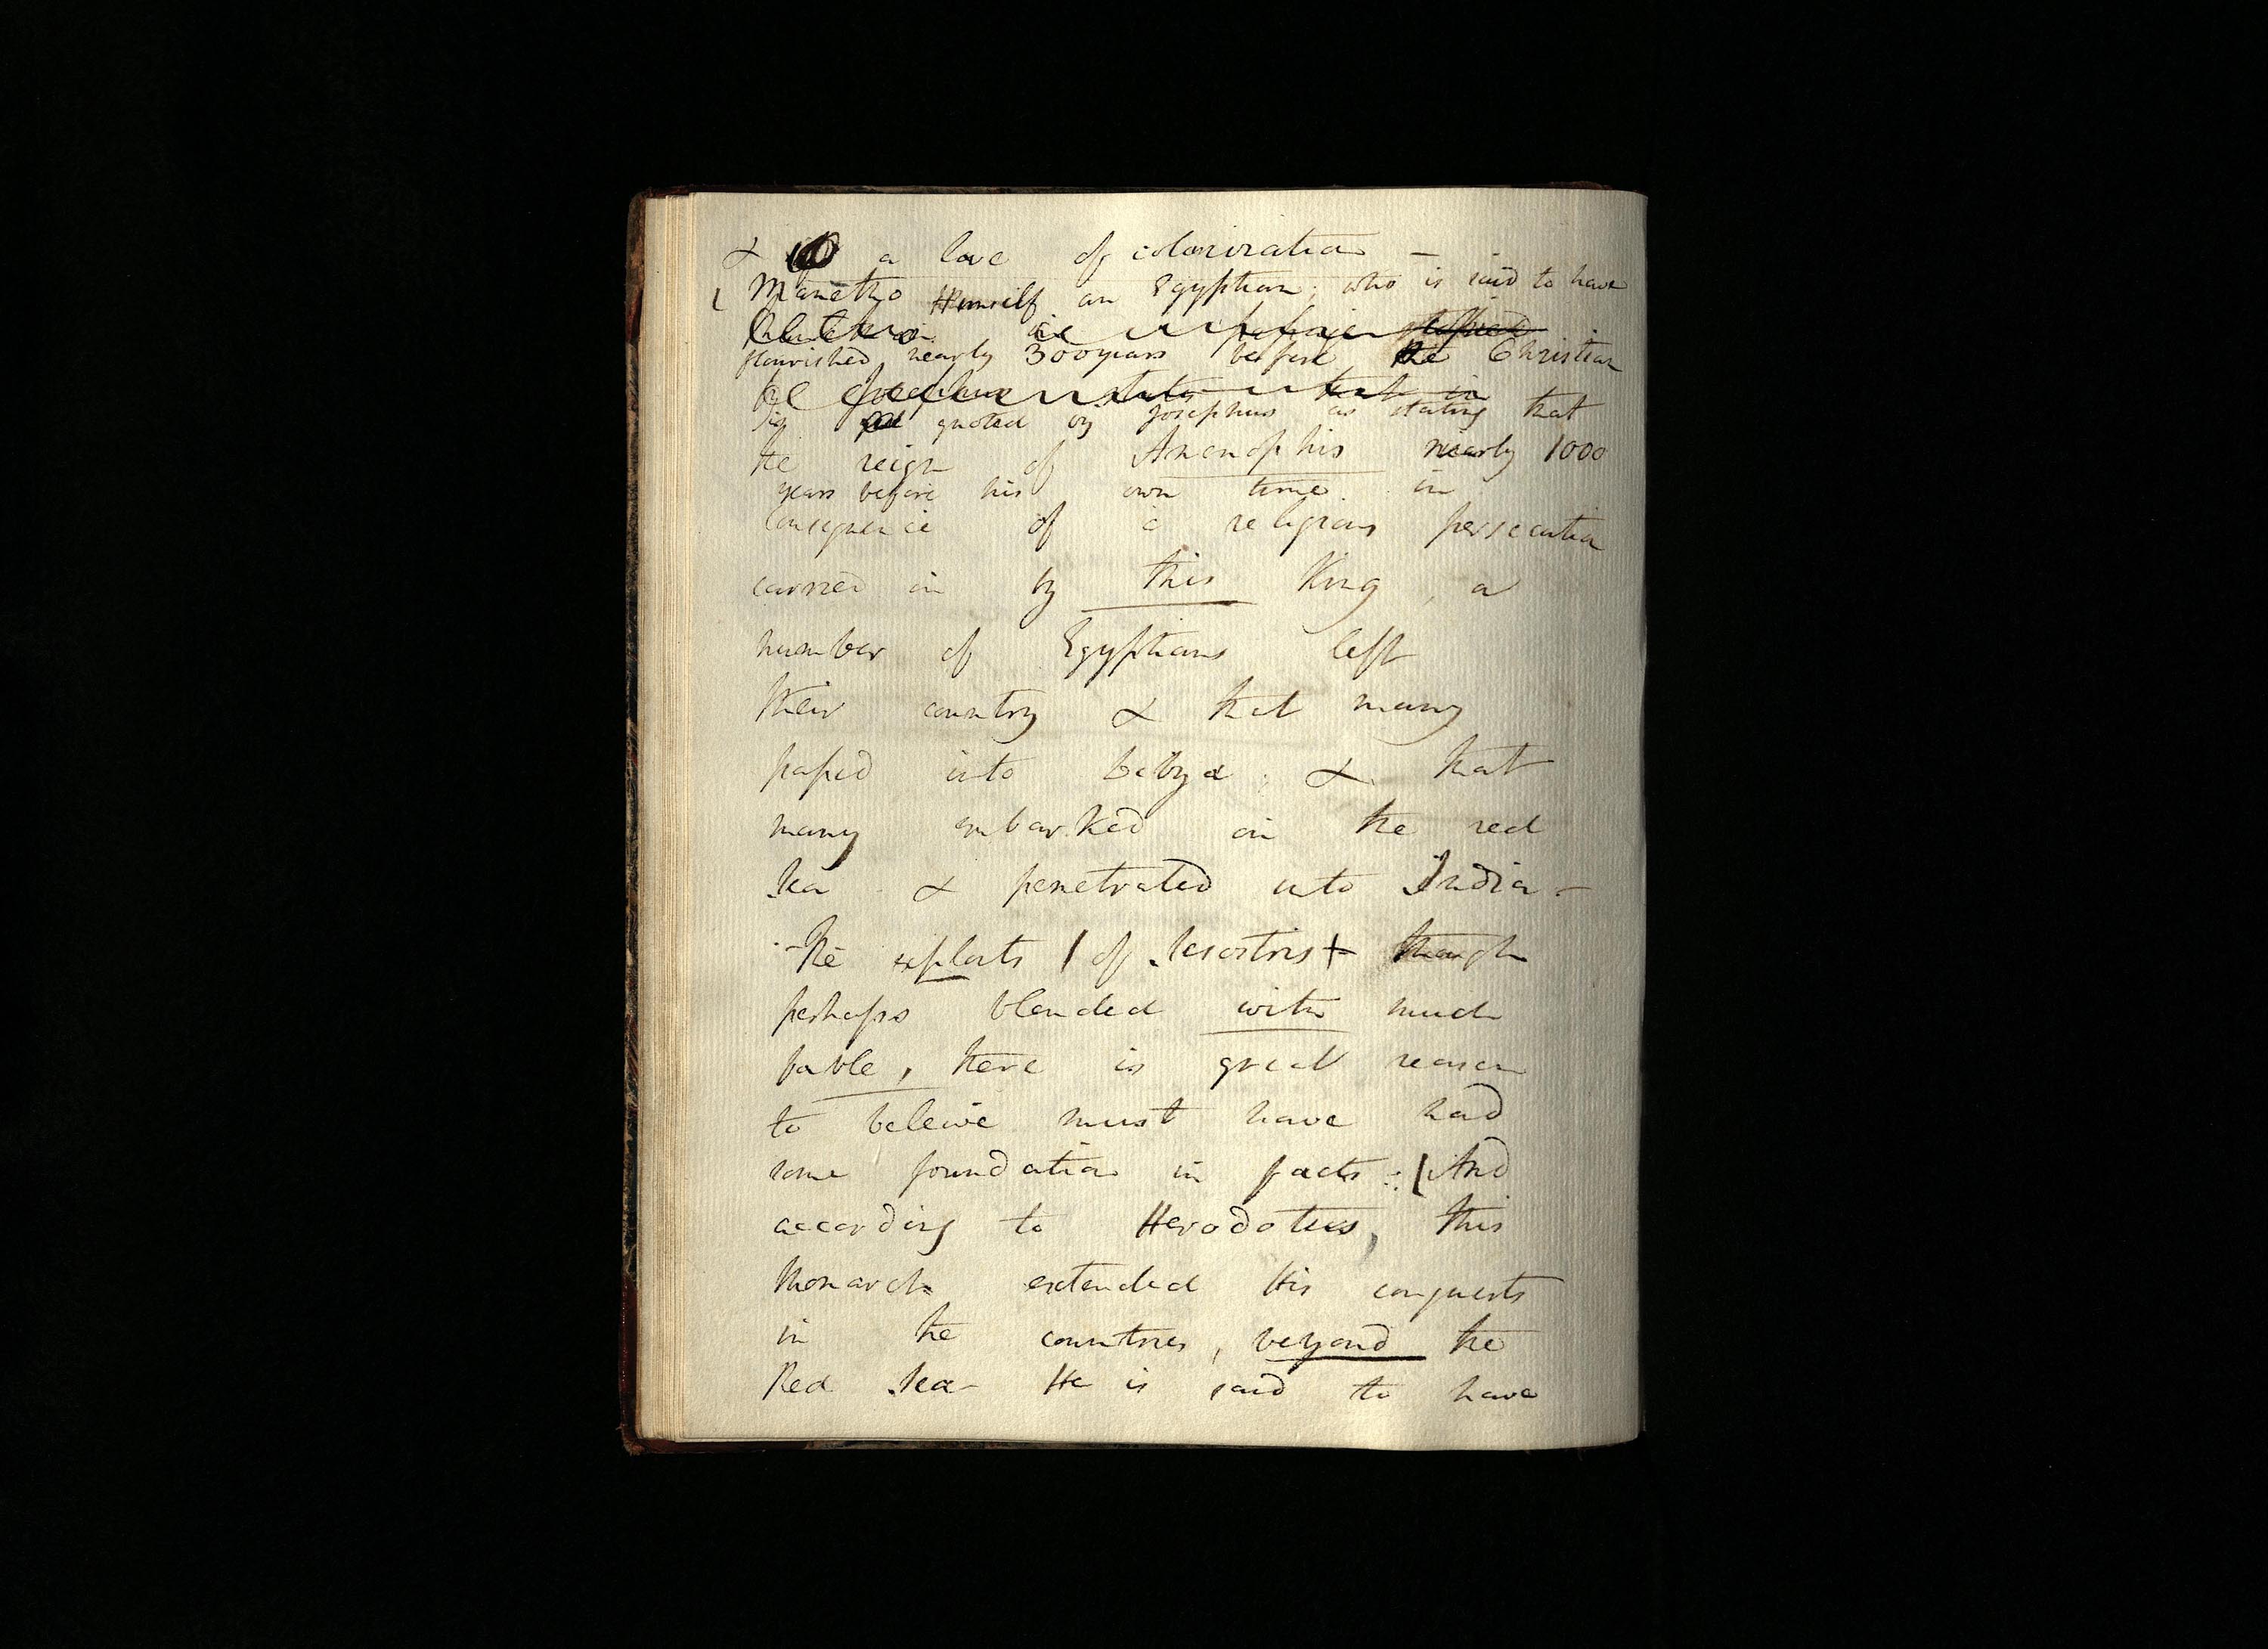 & a love of colonization —
Manetho Himself an Egyptian; who is said to have
is
flourished nearly 300 years before the Christian
Josephus states that in
is quoted by Josephus as stating that
the reign of Amenophis nearly 1000
years before his own time. in
consequence of a religious persecution
carried on by this King, a
number of Egyptians left
their country & that many
passed into Libya; & that
many embarked on the red
Sea & penetrated into India —
The exploits / of Sesostris + though
perhaps blended with much
fable, there is great reason
to beleive must have had
some foundation in facts: (And
according to Herodotus, this
Monarch extended His conquests
in the countries, beyond the
Red Sea — He is said to have